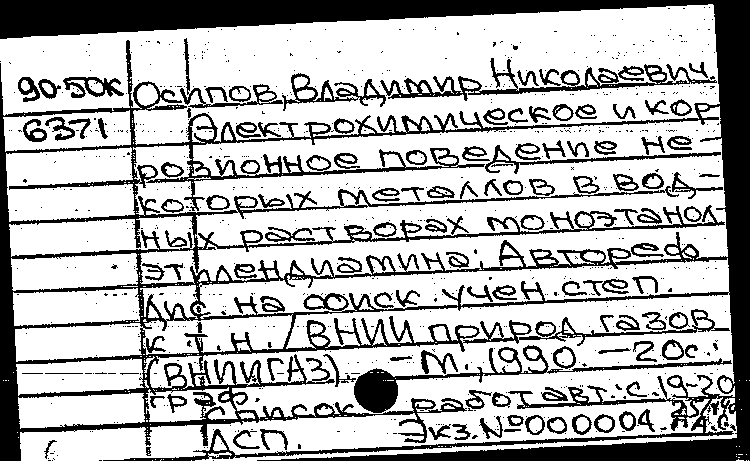 90-50К Осипов, Владимир Николаевич.
6371 Электрохимическое и кор-
розионное поведение не-
которых металлов в вод-
ных растворах моноэтанол
этилендиамина: Автореф
дис. на соиск. учен. степ.
к.т.н. / ВНИИ природ. газов
(ВНИИГАЗ). - М., 1990. - 20с.:
граф.
Список работ авт.: с. 19-20
ДСП. Экз. №000004.